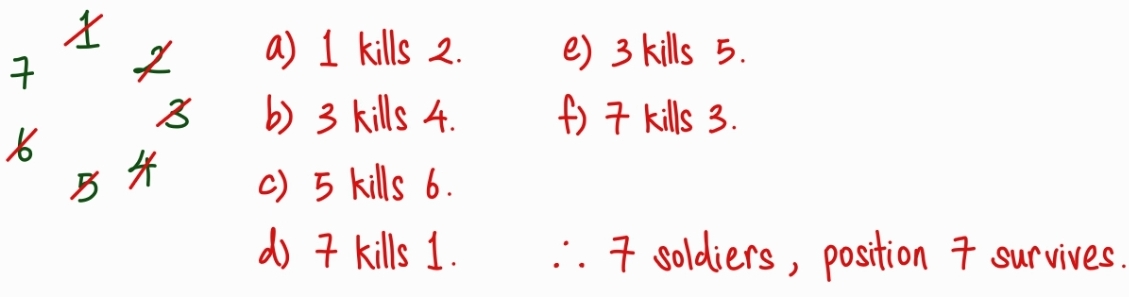 1
7 2
3
6
5 4
a) 1 kills 2.
b) 3 kills 4.
c) 5 kills 6.
d) 7 kills 1.
e) 3 kills 5.
f) 7 kills 3.
∴ 7 soldiers, position 7 survives.